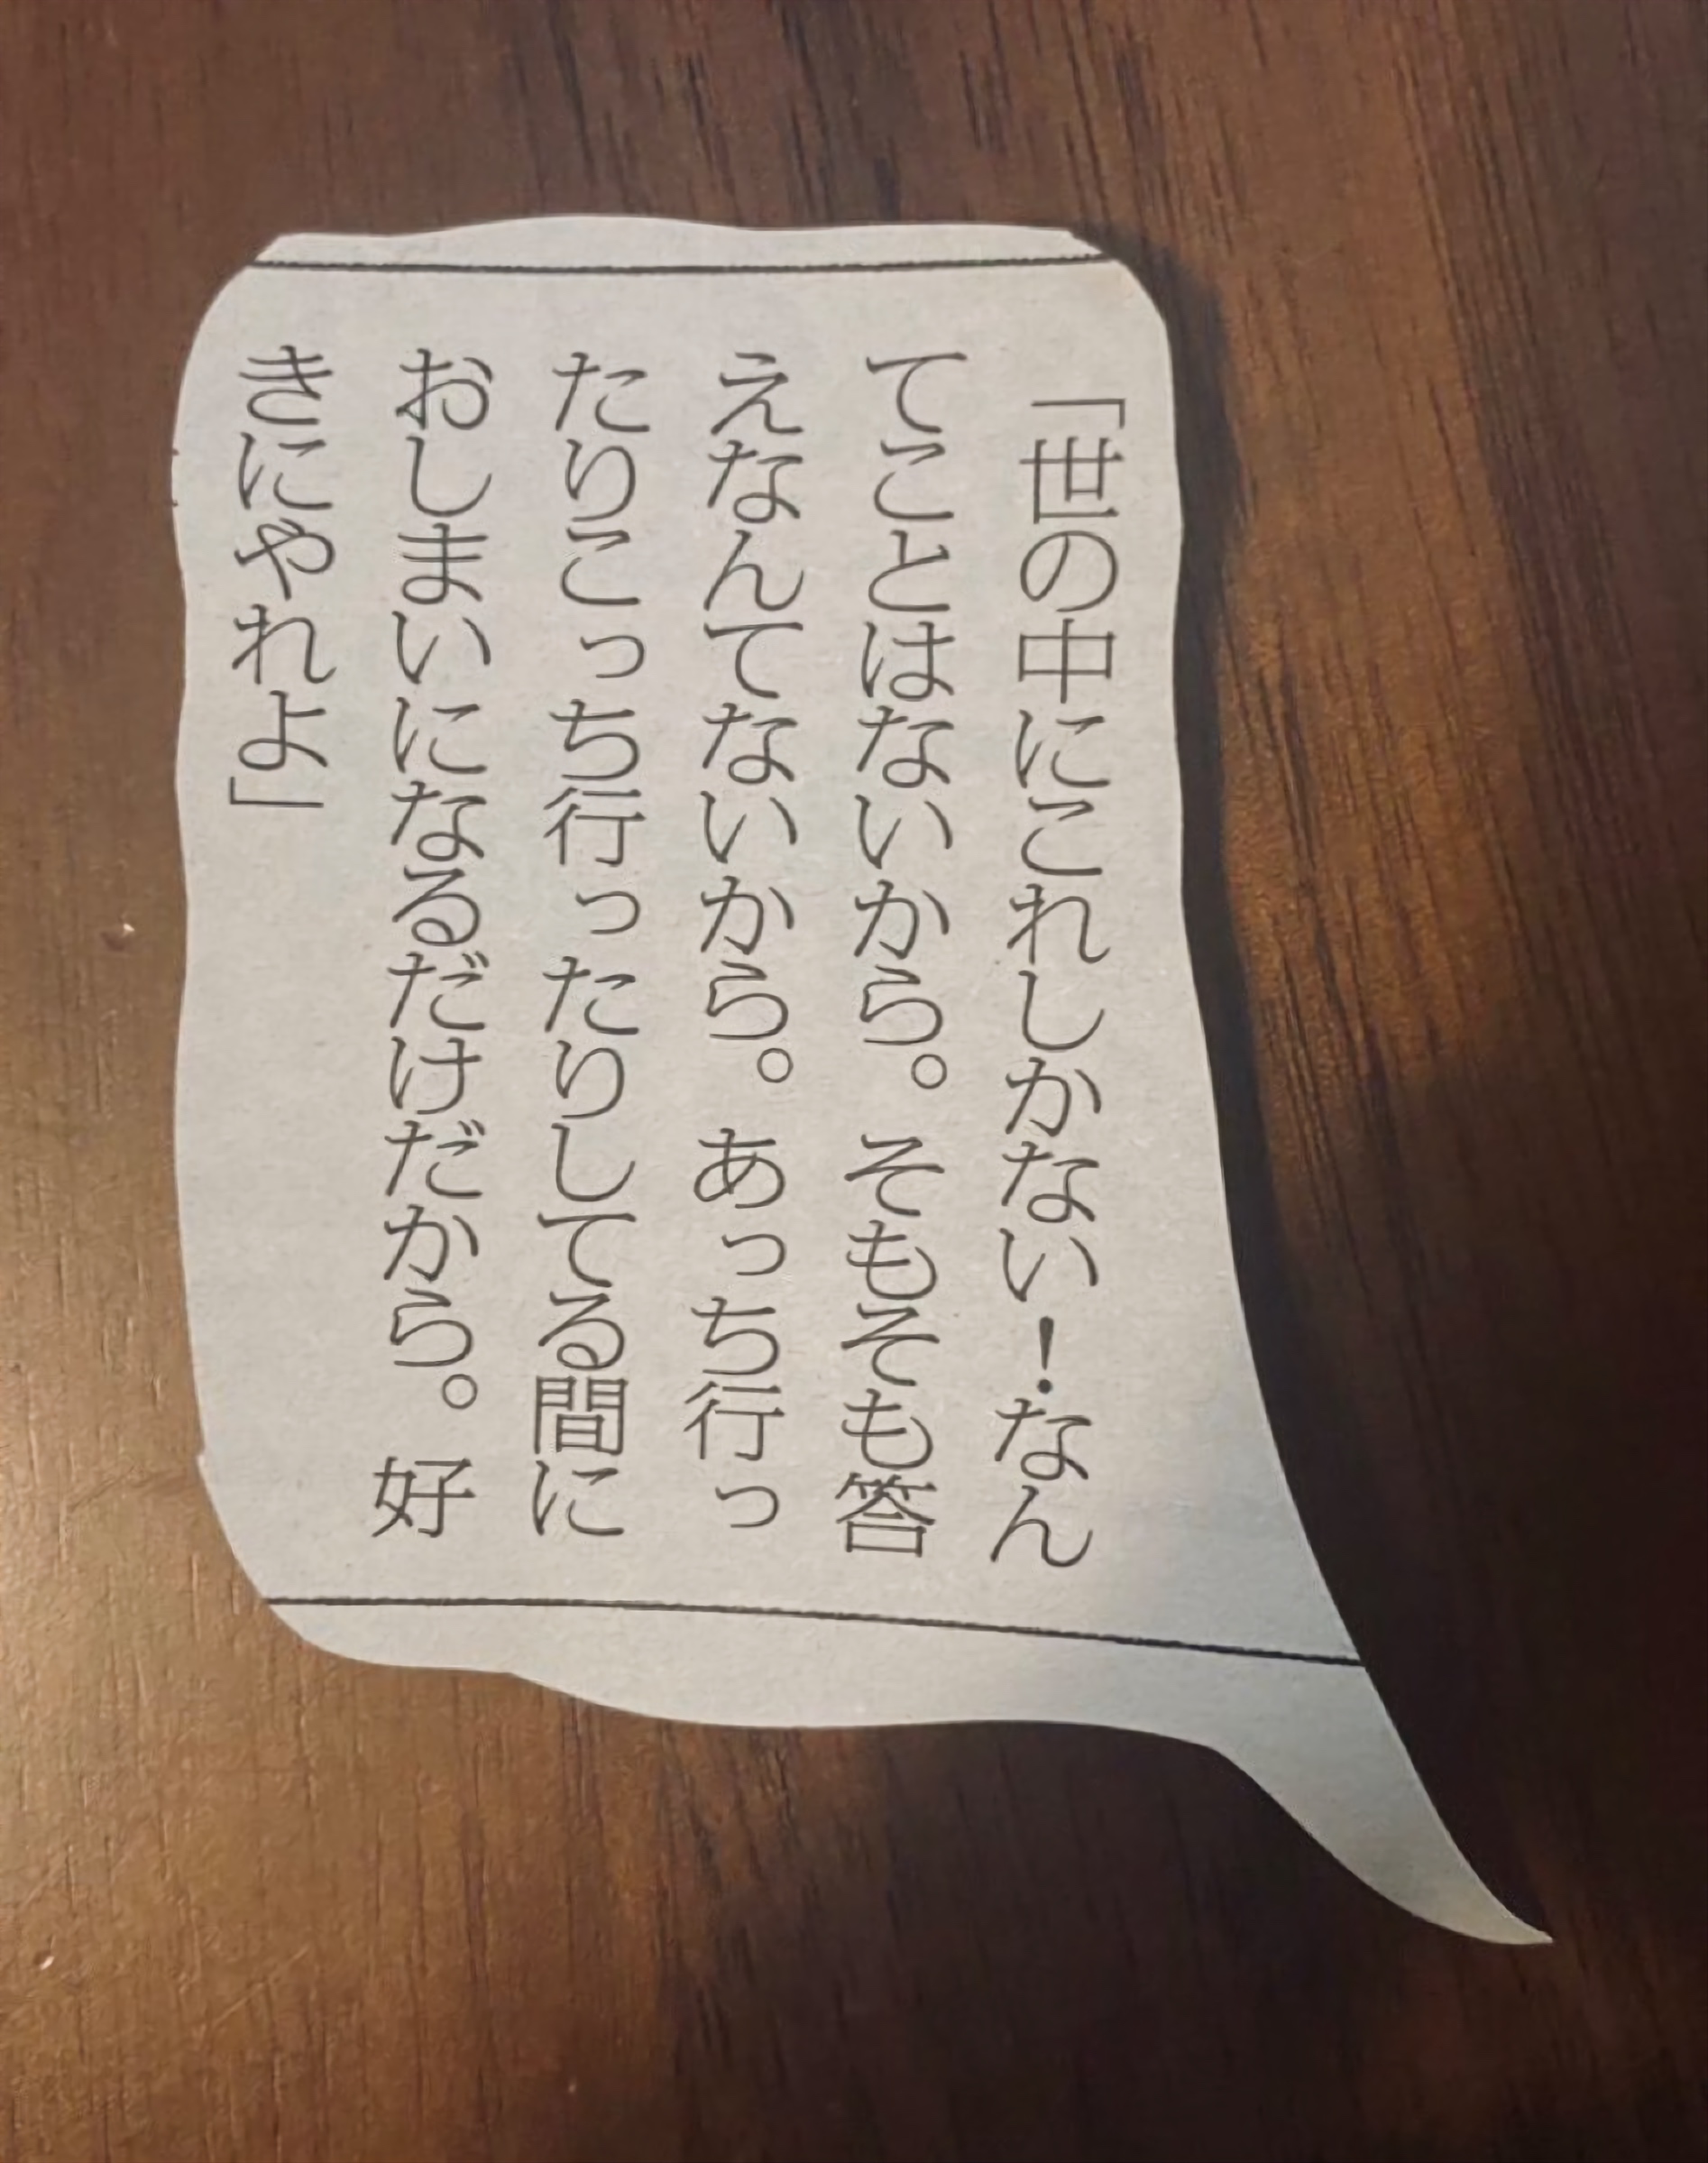 「世の中にこれしかない！なん
てことはないから。そもそも答
えなんてないから。あっち行っ
たりこっち行ったりしてる間に
おしまいになるだけだから。好
きにやれよ」